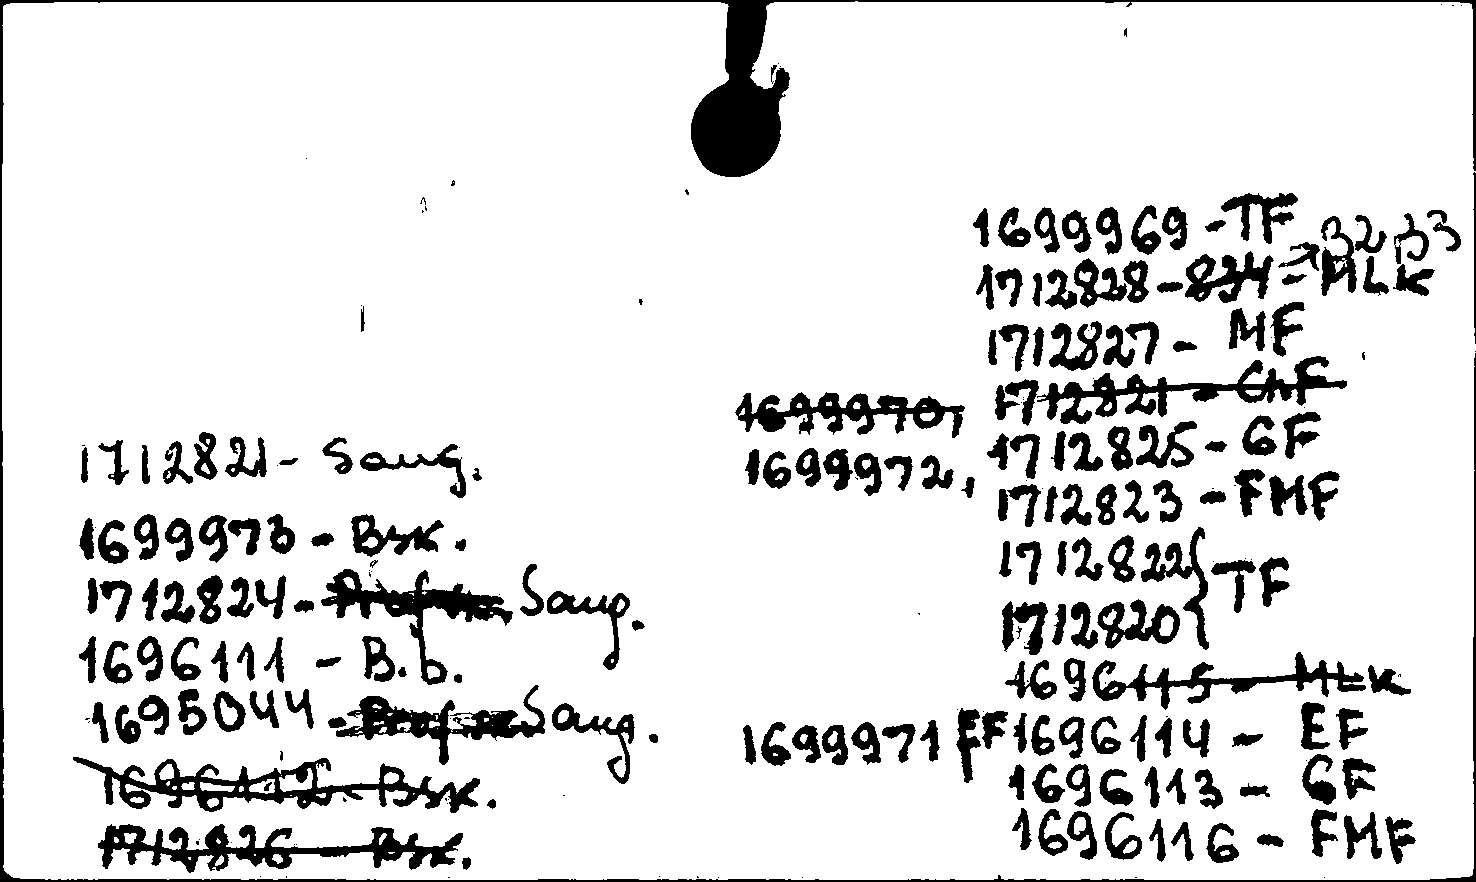 1712821 - Saug.
1699973 - Bsk.
1712824 - Saug.
1696111 - B.b.
1695044 - Saug.
1696112 - Bsk.
1712826 - Bsk.
1699969 - TF
32, 33
1712828 - 834 - MLK
1712827 - MF
1699970, 1712821 - ChF
1699972, 1712825 - GF
1712823 - FMF
1712822 } TF
1712820
1696115 - MLK
1699971 EF 1696114 - EF
1696113 - GF
1696116 - FMF